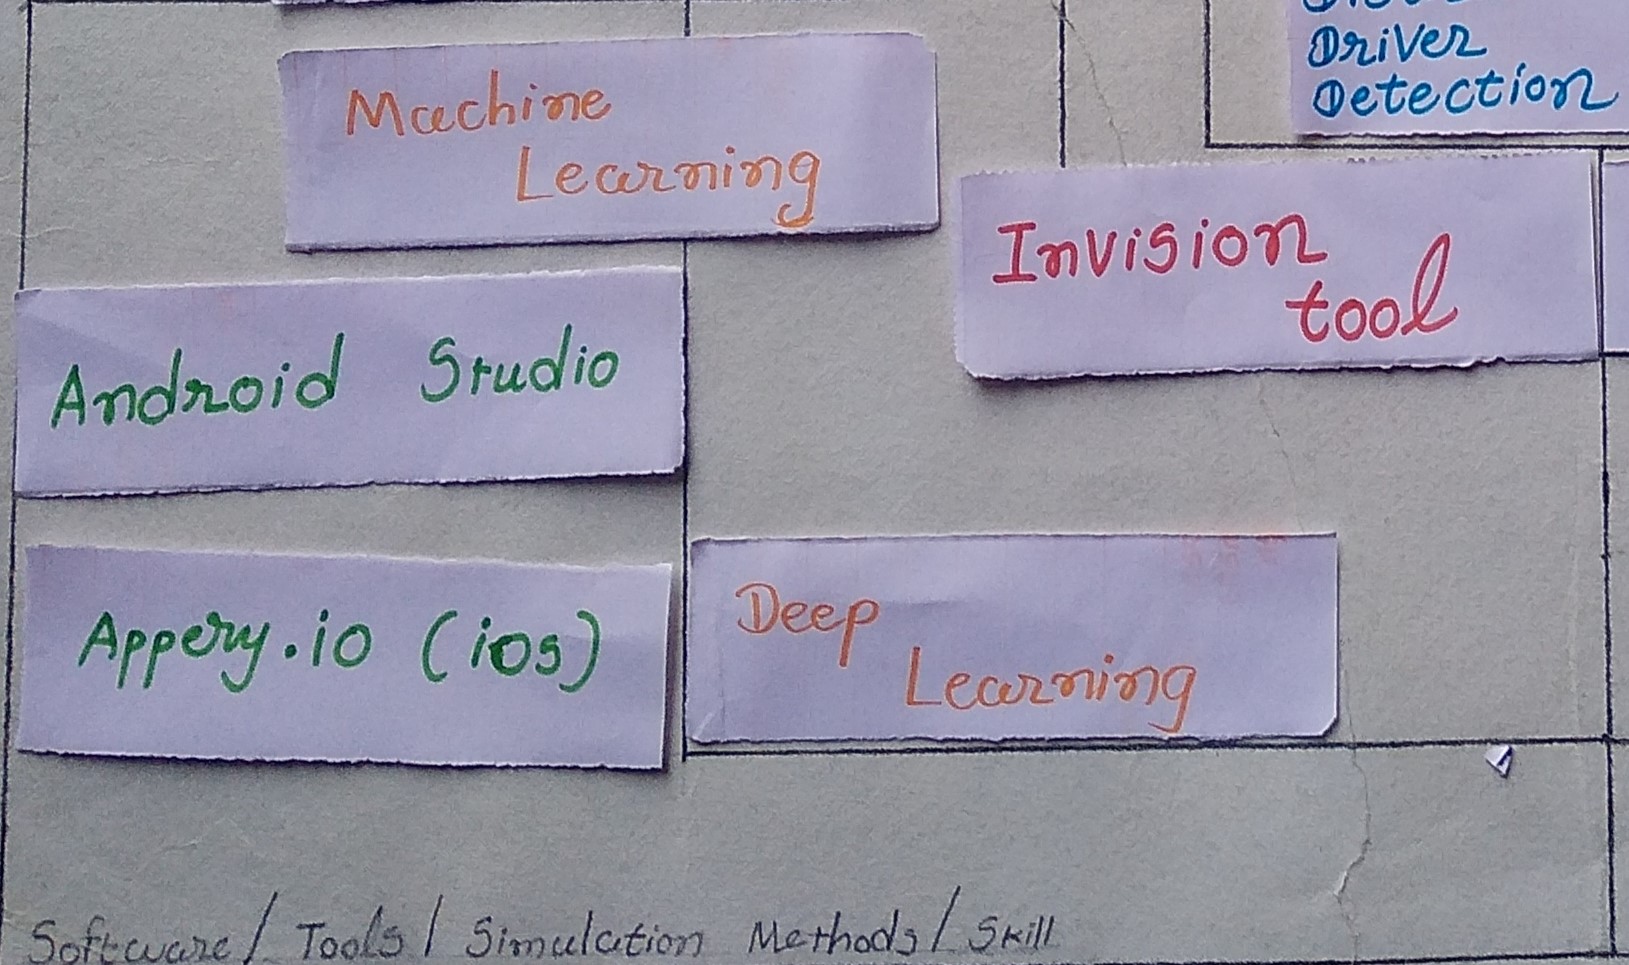 Driver
Detection
Machine
Learning
Invision
tool
Android Studio
Appery.io (ios)
Deep
Learning
Software / Tools / Simulation Methods / Skill